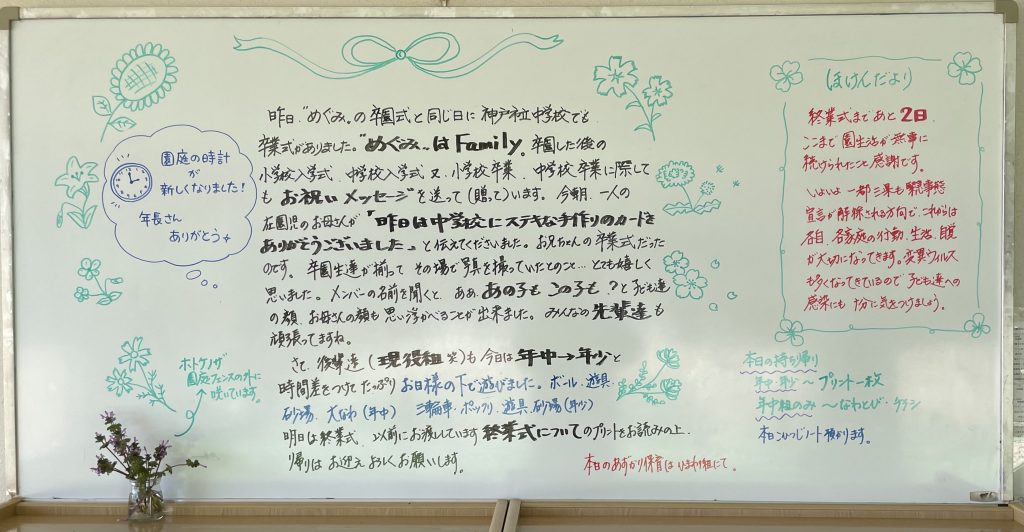 園庭の時計
が
新しくなりました!
年長さん
ありがとう
昨日、"めぐみ"の卒園式と同じ日に神戸社中学校でも
卒業式がありました。"めぐみ"はFamily。卒園した後の
小学校入学式、中学校入学式、又、小学校卒業、中学校卒業に際しても
お祝いメッセージを送って(贈て)います。今朝、一人の
在園児のお母さんが「昨日は中学校にステキな手作りのカードを
ありがとうございました。」と伝えてくださいました。お兄ちゃんの卒業式だった
のです。卒園生達が揃って その場で写真を撮っていたとのこと…とても嬉しく
思いました。メンバーの名前を聞くと、ああ、あの子も この子も ?と子ども達
の顔、お母さんの顔も思い浮かべることが出来ました。みんなの先輩達も
頑張ってますね。
さて、後輩達(現役組 笑)も今日は年中→年少と
時間差をつけて たっぷり お日様の下で遊びました。ボール、遊具、
砂場、大なわ(年中) 三輪車・ポックリ、遊具、砂場(年少)
明日は終業式、以前にお渡ししています終業式についてのプリントをお読みの上、
帰りは お迎え よろしくお願いします。
本日のあずかり保育は ひまわり組にて。
ホトケノザ
園庭フェンスの外に
咲いています。
ほけんだより
終業式まであと2日
ここまで園生活が無事に
続けられたこと感謝です。
いよいよ一都三県も緊急事態
宣言が解除される方向で、これからは
各自、各家庭の行動、生活、自覚
が大切になってきます。変異ウィルス
も多くなってきているので 子ども達への
感染にも 十分に気をつけましょう。
本日の持ち帰り
年中・年少〜プリント一枚
年中組のみ〜なわとび・チラシ
本日ひつじノート預かります。